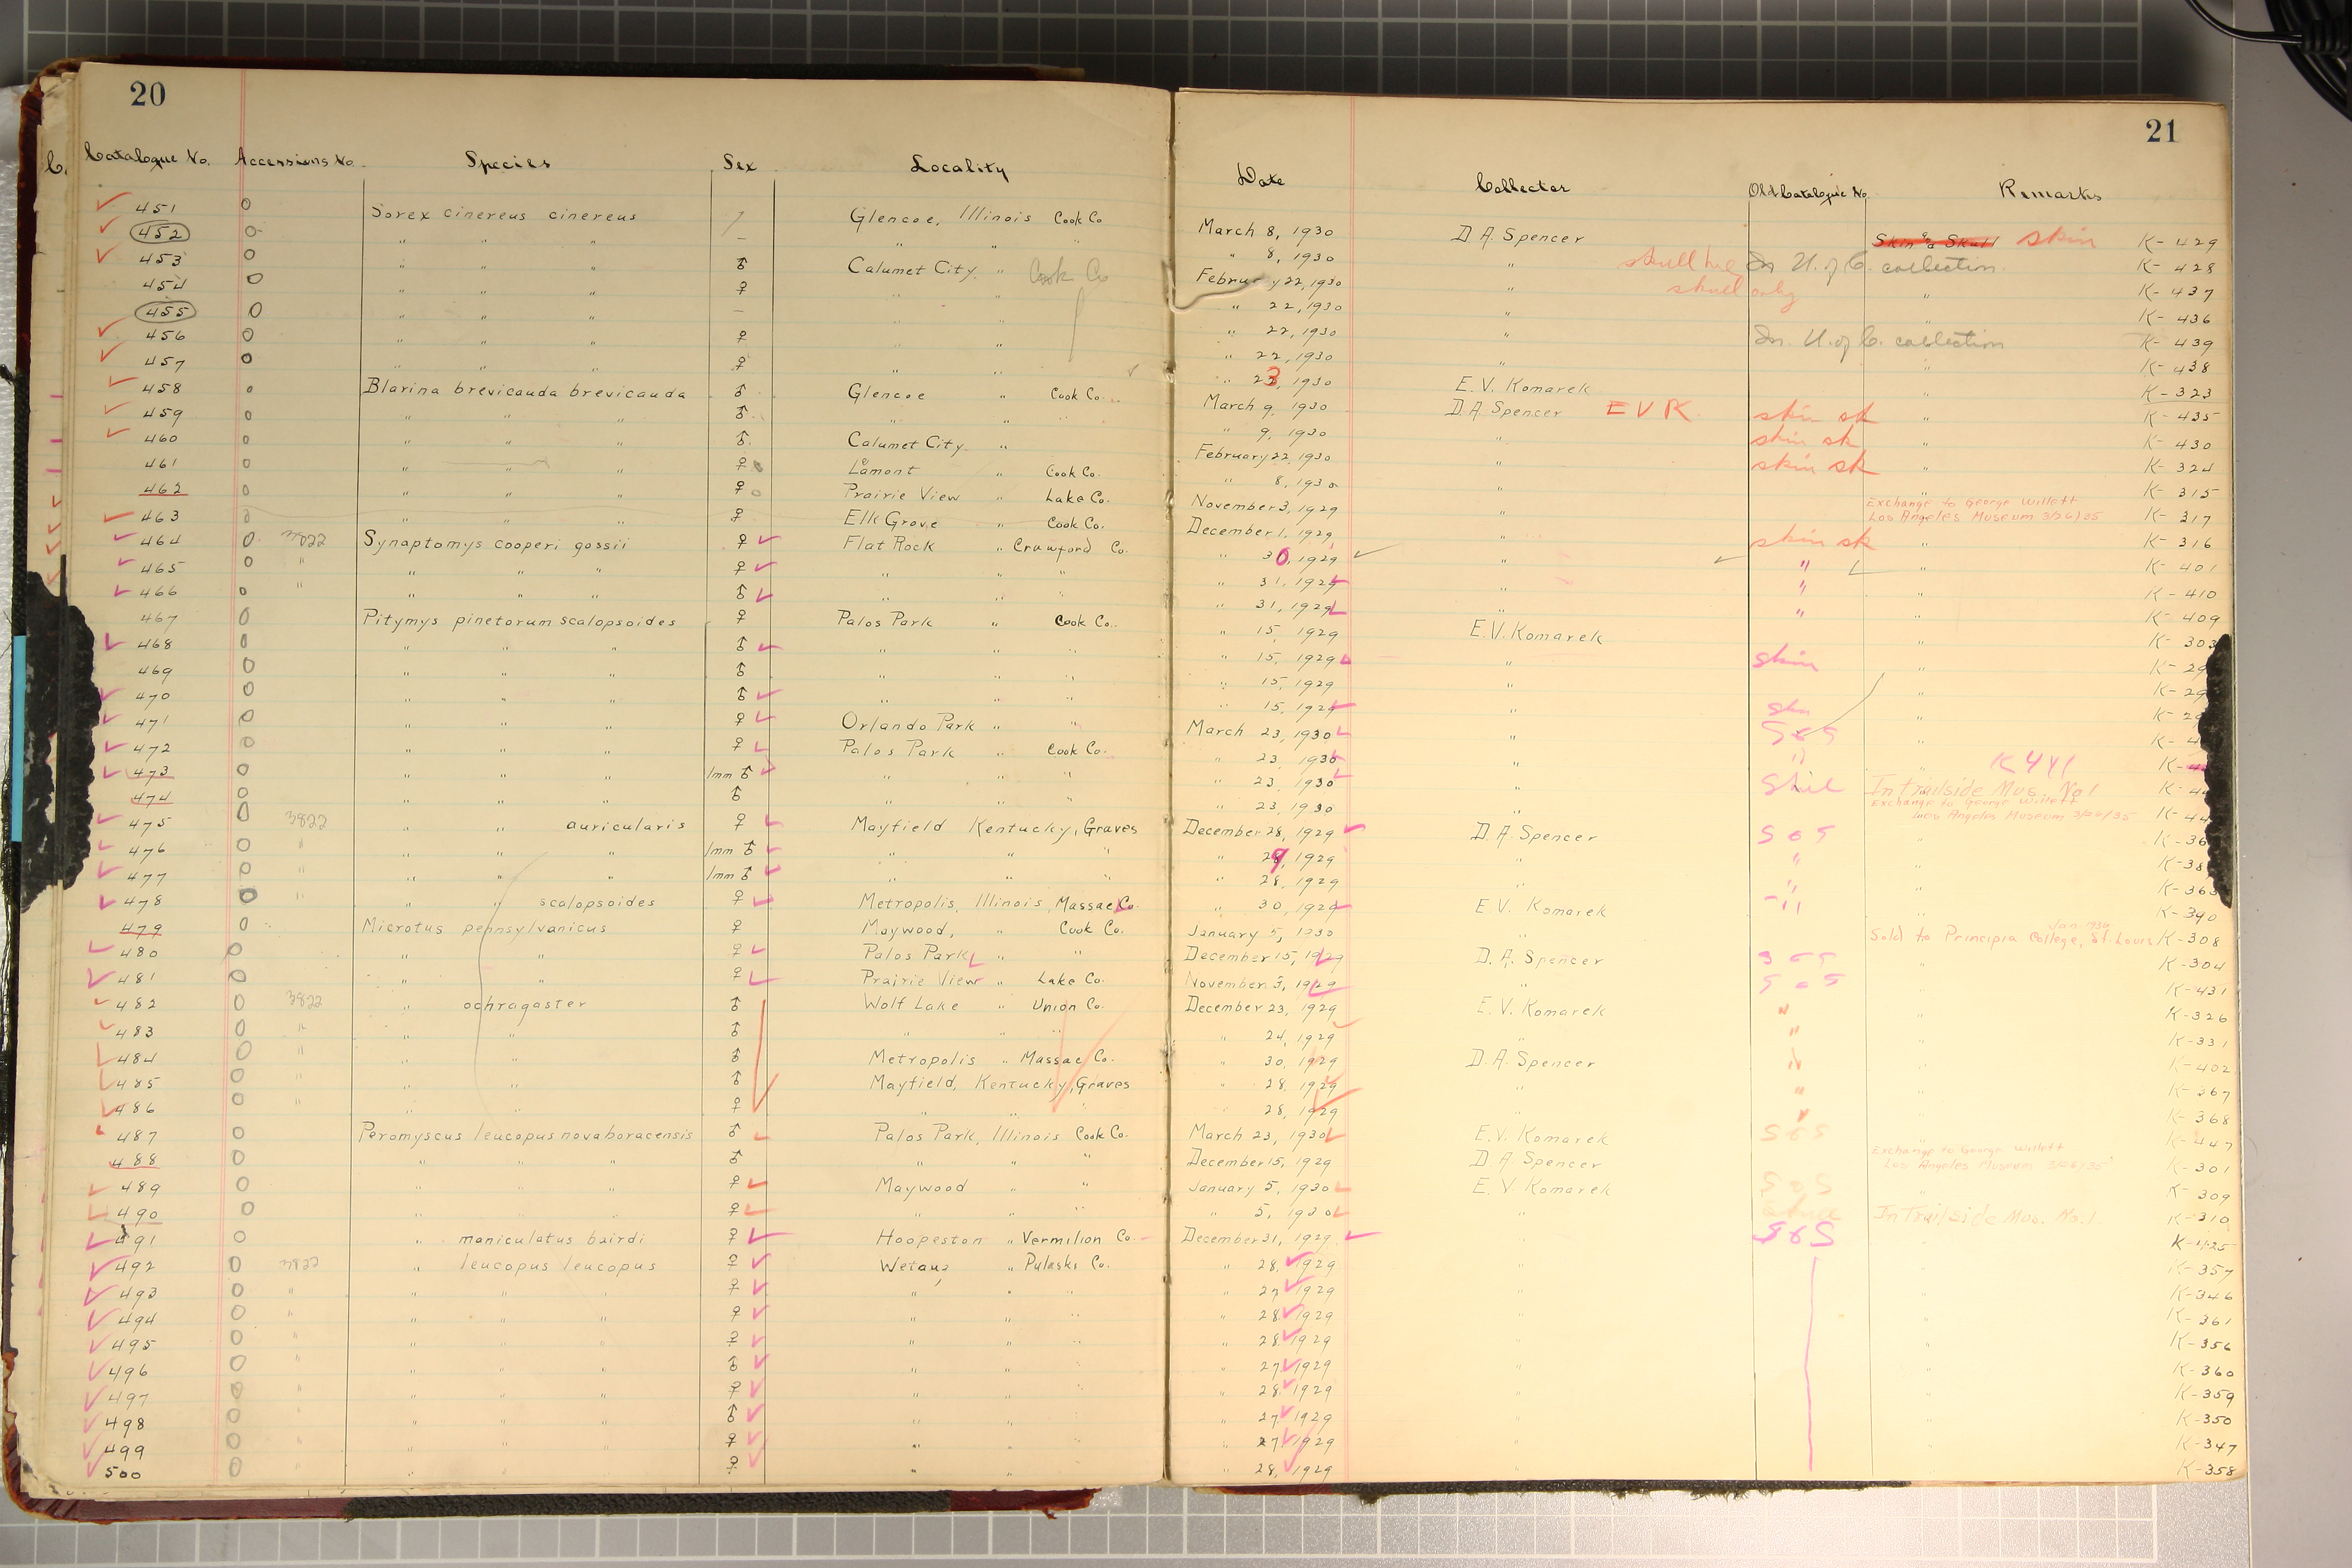 20
Catalogue No. Accessions No. Species Sex Locality
451 O Sorex cinereus cinereus Glencoe, Illinois Cook Co
452 O " " " – " " "
453 O " " " ♂ Calumet City, " Cook Co
454 O " " " ♀ " "
455 O " " " – " "
456 O " " " ♀ " "
457 O " " " ♀ " "
458 O Blarina brevicauda brevicauda ♂ Glencoe " Cook Co.
459 O " " " ♂ " " "
460 O " " " ♂ Calumet City "
461 O " " " ♀ Lemont " Cook Co.
462 O " " " ♀ Prairie View " Lake Co.
463 O " " " ♀ Elk Grove " Cook Co.
464 O 3822 Synaptomys cooperi gossii ♀ Flat Rock " Crawford Co.
465 O " " " " ♀ " " "
466 O " " " " ♂ " " "
467 O Pitymys pinetorum scalopsoides ♀ Palos Park " Cook Co.
468 O " " " ♂ " " "
469 O " " " ♂ " " "
470 O " " " ♂ " " "
471 O " " " ♀ Orlando Park " "
472 O " " " ♀ Palos Park " Cook Co.
473 O " " " Imm ♂ " " "
474 O " " " ♂ " " "
475 O 3822 " " auricularis ♀ Mayfield Kentucky, Graves
476 O " " " " Imm ♂ " " "
477 O " " " " Imm ♂ " " "
478 O " " " scalopsoides ♀ Metropolis, Illinois, Massac Co.
479 O Microtus pennsylvanicus ♀ Maywood, " Cook Co.
480 O " " ♀ Palos Park " "
481 O " " ♀ Prairie View " Lake Co.
482 O 3822 " ochragaster ♂ Wolf Lake " Union Co.
483 O " " " ♂ " " "
484 O " " " ♂ Metropolis " Massac Co.
485 O " " " ♂ Mayfield, Kentucky, Graves
486 O " " " ♀ " " "
487 O Peromyscus leucopus novaboracensis ♂ Palos Park, Illinois Cook Co.
488 O " " " ♂ " " "
489 O " " " ♀ Maywood " "
490 O " " " ♀ " " "
491 O " maniculatus bairdi ♀ Hoopeston " Vermilion Co.
492 O 3822 " leucopus leucopus ♀ Wetaug " Pulaski Co.
493 O " " " " ♀ " " "
494 O " " " " ♀ " " "
495 O " " " " ♀ " " "
496 O " " " " ♂ " " "
497 O " " " " ♀ " " "
498 O " " " " ♂ " " "
499 O " " " " ♀ " " "
500 O " " " ♀ " "
21
Date Collector Old Catalogue No. Remarks
March 8, 1930 D.A. Spencer Skin and Skull skin K-429
" 8, 1930 " In U. of C. collection. K-428
February 22, 1930 " skull only " K-437
" 22, 1930 " K-436
" 22, 1930 " In U. of C. collection K-439
" 22, 1930 " " K-438
" 23, 1930 E.V. Komarek " K-323
March 9, 1930 D.A. Spencer EVK skin sk " K-435
" 9, 1930 " skin sk " K-430
February 22, 1930 " skin sk " K-324
" 8, 1930 " " K-315
November 3, 1929 " Exchange to George Willett
Los Angeles Museum 3/26/35 K-317
December 1, 1929 " skin sk " K-316
" 30, 1929 " " " K-401
" 31, 1929 " " " K-410
" 31, 1929 " " " K-409
" 15, 1929 E.V. Komarek " K-303
" 15, 1929 " skin " K-29
" 15, 1929 " " K-29
" 15, 1929 " skin " K-29
March 23, 1930 " S&S " K-4
" 23, 1930 " " " K441 K-4
" 23, 1930 " In trailside Mus. No 1 K-44
" 23, 1930 " Exchange to George Willett
Los Angeles Museum 3/26/35 K-44
December 28, 1929 D.A. Spencer S&S " K-36
" 29, 1929 " " " K-38
" 28, 1929 " " " K-363
" 30, 1929 E.V. Komarek " " K-390
January 5, 1930 " Jan 1936
Sold to Principia College, St. Louis K-308
December 15, 1929 D.A. Spencer S&S " K-304
November 3, 1929 " S&S " K-431
December 23, 1929 E.V. Komarek " " K-326
" 24, 1929 " " " K-331
" 30, 1929 D.A. Spencer " " K-402
" 28, 1929 " " " K-367
" 28, 1929 " " " K-368
March 23, 1930 E.V. Komarek S&S " K-447
December 15, 1929 D.A. Spencer Exchange to George Willett
Los Angeles Museum 3/26/35 K-301
January 5, 1930 E.V. Komarek S&S " K-309
" 5, 1930 " In Trailside Mus. No. 1. K-310
December 31, 1929 " S&S " K-425
" 28, 1929 " " K-357
" 27, 1929 " " K-346
" 28, 1929 " " K-361
" 28, 1929 " " K-356
" 27, 1929 " " K-360
" 28, 1929 " " K-359
" 27, 1929 " " K-350
" 27, 1929 " " K-347
" 28, 1929 " " K-358